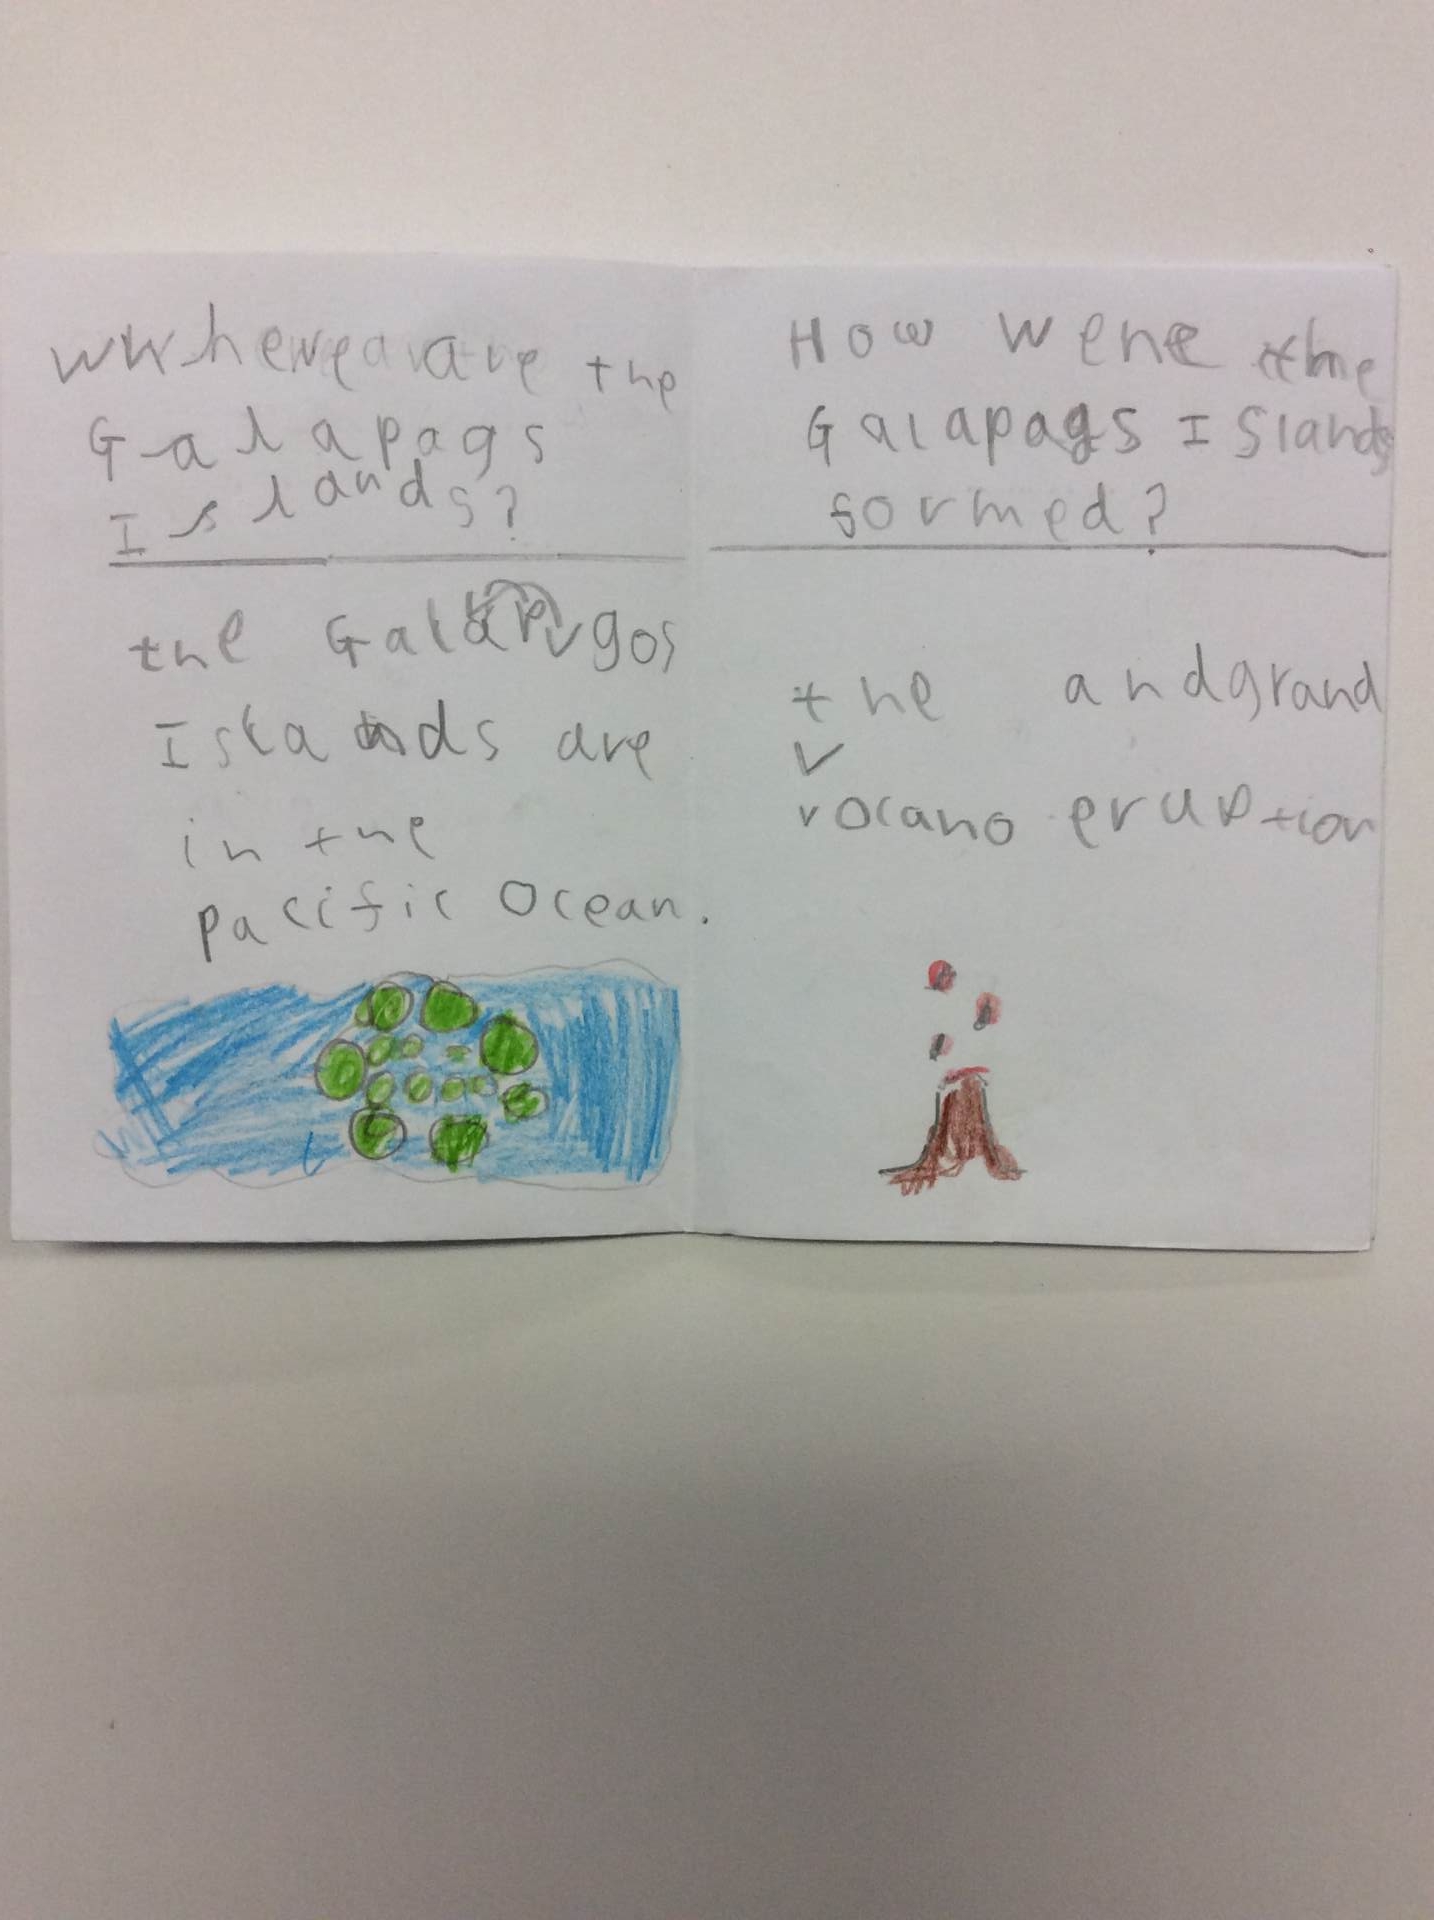 where are the
Galapags
Islands?
the Galapgos
Islands are
in the
pacific Ocean.
How were the
Galapags Islands
formed?
the andgrand
vocano eruption